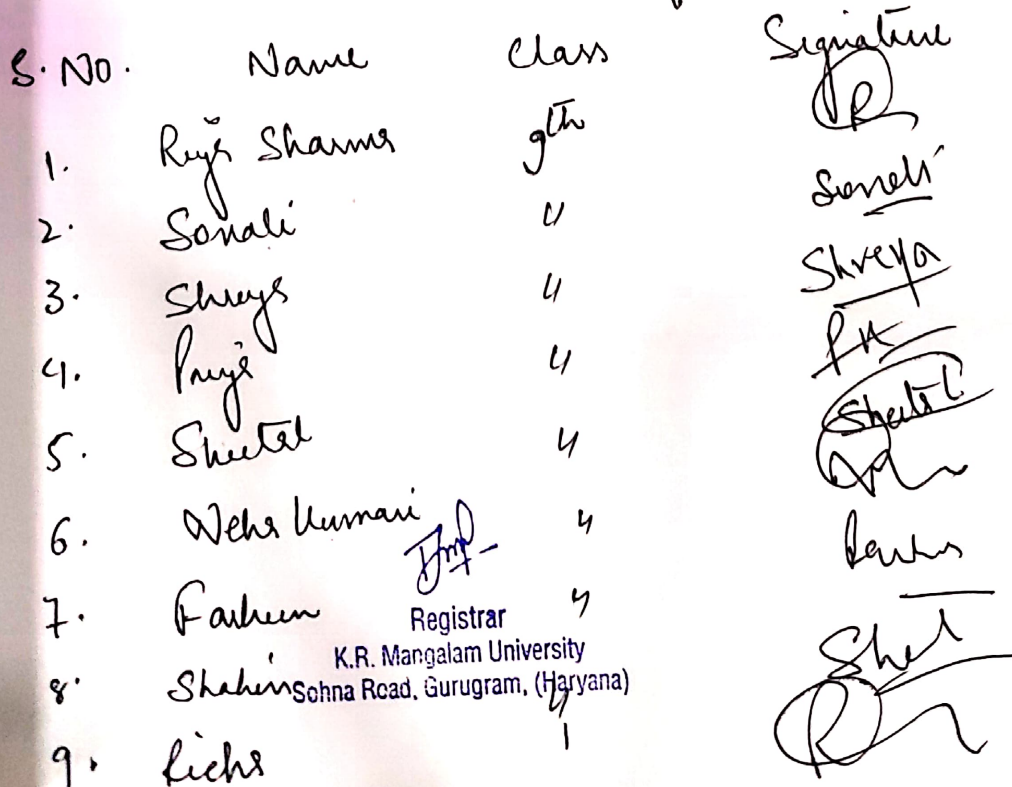 S. NO. Name Class Signature
1. Riya Sharma 9th R
2. Sonali " Sonali
3. Shreya " Shreya
4. Priya "
5. Sheetal " Sheetal
6. Neha Kumari "
7. Farheen "
Registrar
K.R. Mangalam University
8. Shahin "
Sohna Road, Gurugram, (Haryana)
9. Richa